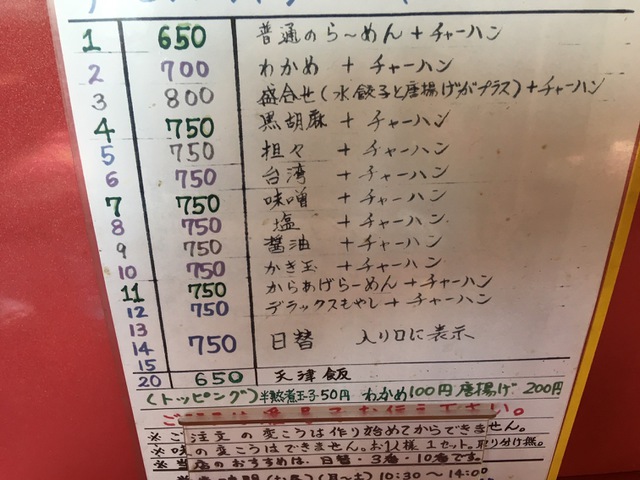 1 650 普通のら～めん + チャーハン
2 700 わかめ + チャーハン
3 800 盛合せ(水餃子と唐揚げがプラス) + チャーハン
4 750 黒胡麻 + チャーハン
5 750 担々 + チャーハン
6 750 台湾 + チャーハン
7 750 味噌 + チャーハン
8 750 塩 + チャーハン
9 750 醤油 + チャーハン
10 750 かき玉 + チャーハン
11 750 からあげらーめん + チャーハン
12 750 デラックスもやし + チャーハン
13
14 750 日替 入り口に表示
15
20 650 天津飯
(トッピング) 半熟煮玉子50円 わかめ100円 唐揚げ 200円
番号でお伝え下さい。
注文の変こうは作り始めてからできません。
の変こうはできません。お1人様1セット。取り分け無。
※当店のおすすめは、日替・3番・10番です。
(月～土) 10:30～14:00